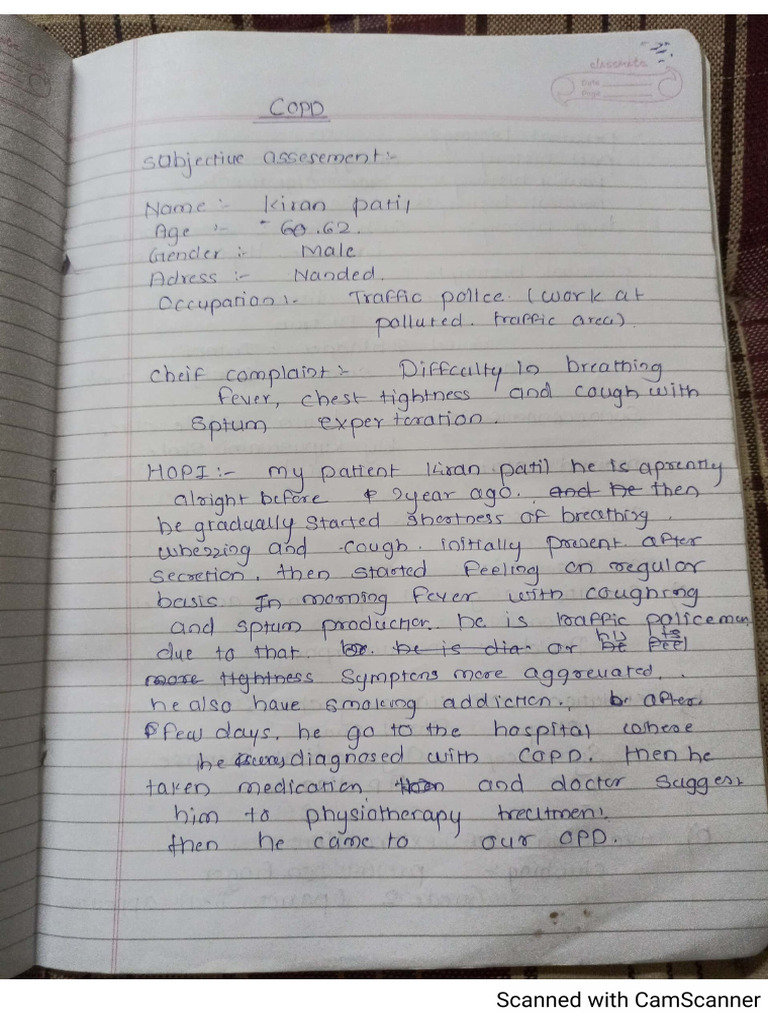 classmate
Date
Page
COPD
Subjective assesement:-
Name:- Kiran patil
Age :- 60.62.
Gender:- Male
Adress:- Nanded.
Occupation:- Traffic police. (work at
polluted. traffic area).
Cheif complaint:- Difficulty in breathing
fever, chest tightness and cough with
Sptum expertoration.
HOPI:- my patient Kiran patil he is aprently
alright before 2 year ago. and he then
he gradually started shortness of breathing.
whezzing and cough. initially present after
secretion. then started feeling on regular
basis. In morning fever with coughing
and sptum production. he is traffic policeman
due to that. he is dia
more tightness symptoms more aggrevated.
he also have smoking addiction. after
few days, he go to the hospital where
he diagnosed with COPD. then he
taken medication and doctor sugges
him to physiotherapy treatment.
then he came to our OPD.
Scanned with CamScanner